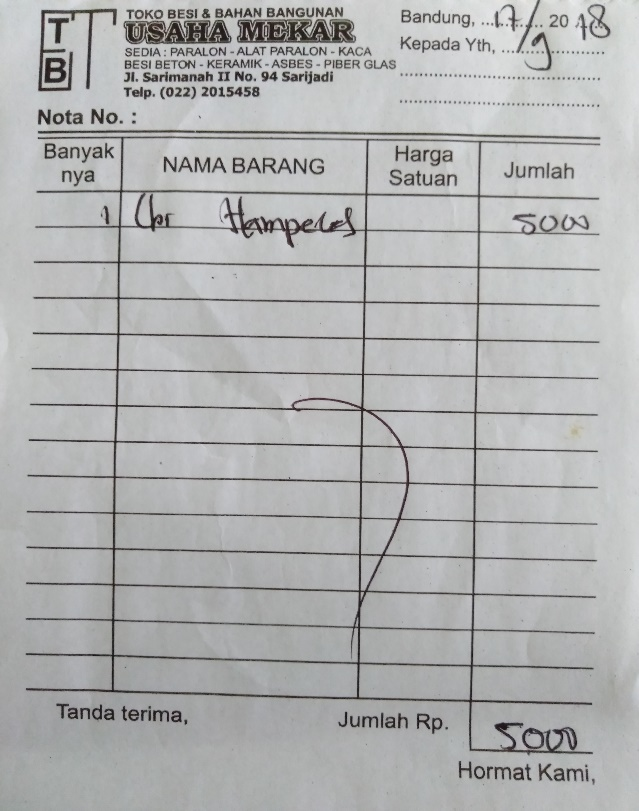 TB
TOKO BESI & BAHAN BANGUNAN
USAHA MEKAR
SEDIA : PARALON - ALAT PARALON - KACA
BESI BETON - KERAMIK - ASBES - PIBER GLAS
Jl. Sarimanah II No. 94 Sarijadi
Telp. (022) 2015458
Bandung, ...17/9... 2018
Kepada Yth, ...
Nota No. :
Banyak nya NAMA BARANG Harga Satuan Jumlah
1 Lbr Hampelas 5000
Tanda terima, Jumlah Rp. 5000
Hormat Kami,